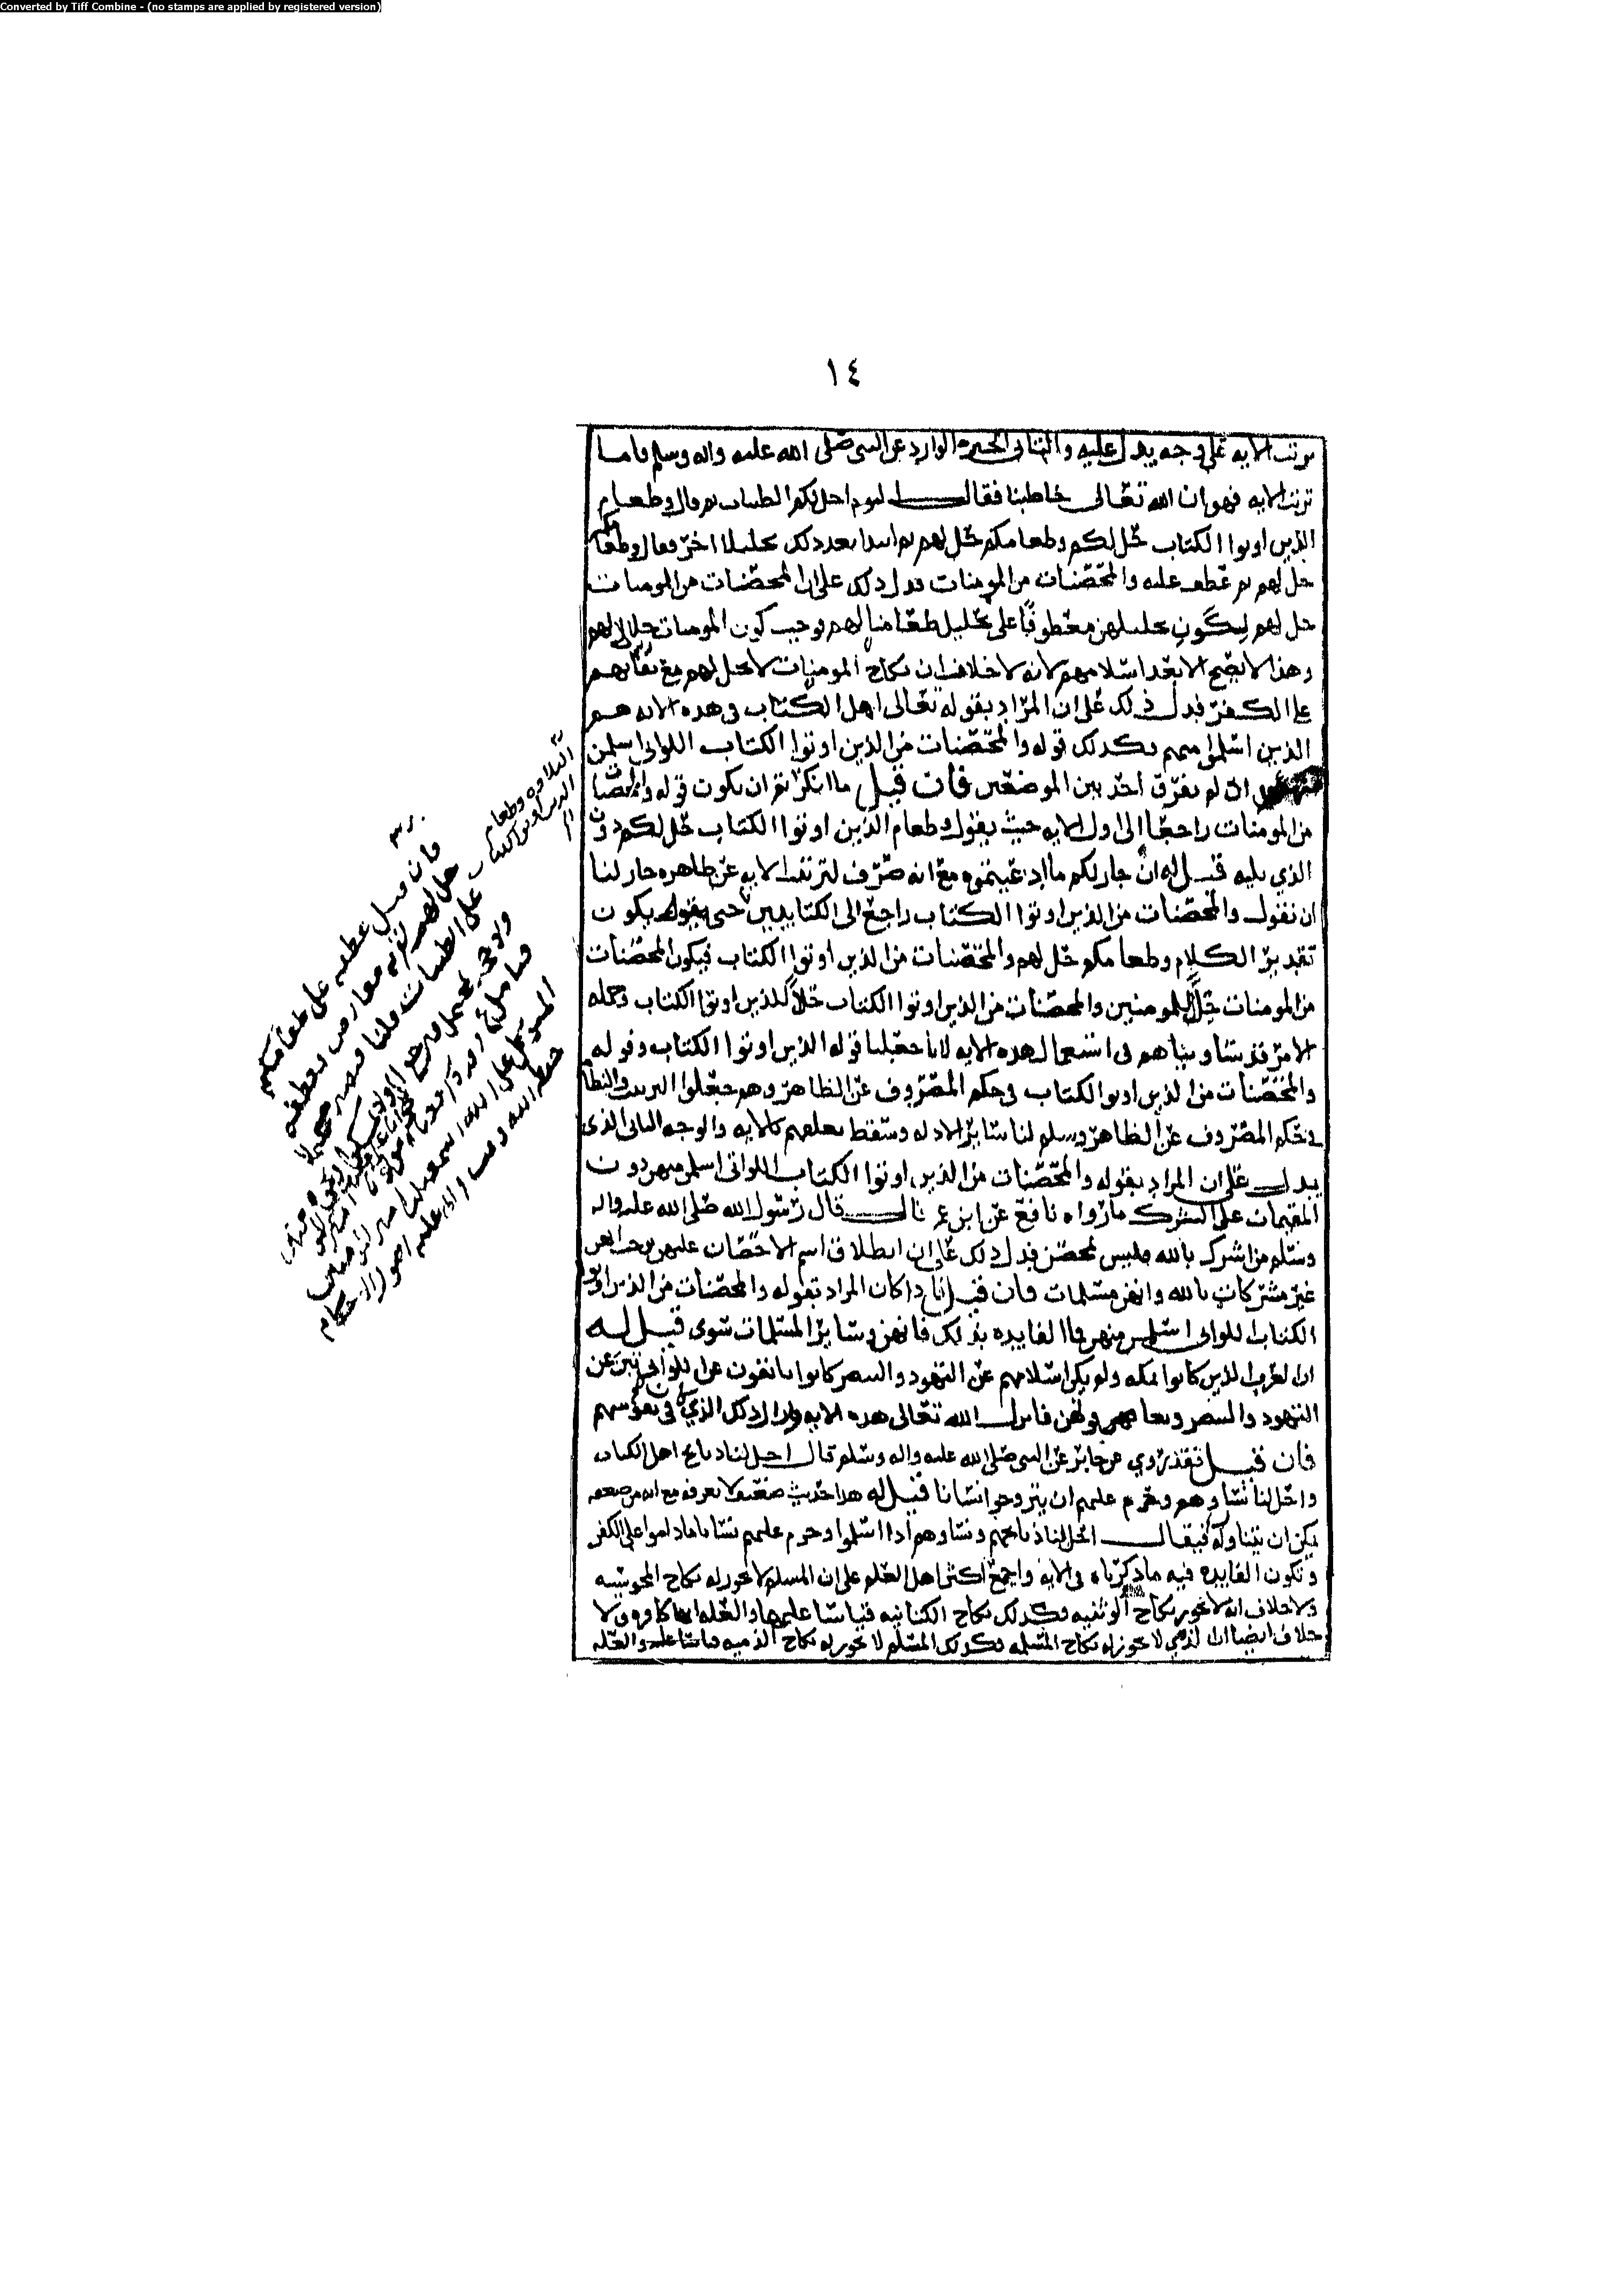 Converted by Tiff Combine - (no stamps are applied by registered version)
١٤
ترتيب الايه على وجه يدل عليه والثاني الخبر الوارد عن النبي صلى الله عليه واله وسلم فاما
ترتيب الايه فهو ان الله تعالى خاطبنا فقال اليوم احل لكم الطيبات ثم قال وطعام
الذين اوتوا الكتاب حل لكم وطعامكم حل لهم ثم ابتدا بعد ذلك تحليلا اخر فقال وطعامكم
حل لهم ثم عطف عليه والمحصنات من المومنات فدل ذلك على ان المحصنات من المومنات
حل لهم ليكون تحليلهن معطوفا على تحليل طعامنا لهم فوجب كون المومنات حلالا لهم
وهذا لا يصح الا بعد اسلامهم لانه لا خلاف ان نكاح المومنات لا يحل لهم مع بقائهم
على الكفر فدل ذلك على ان المراد بقوله تعالى اهل الكتاب في هذه الايه هم
الذين اسلموا منهم فكذلك قوله والمحصنات من الذين اوتوا الكتاب اللواتي اسلمن
اذ لم يفرق احد بين الموضعين فان قيل ما انكرتم ان يكون قوله والمحصنات
من المومنات راجعا الى اول الايه حيث يقول وطعام الذين اوتوا الكتاب حل لكم دون
الذي يليه قيل له ان جاز لكم ما ادعيتموه مع انه صرف لترتيب الايه عن ظاهره جاز لنا
ان نقول والمحصنات من الذين اوتوا الكتاب راجع الى الكتابيين حتى يكون
تقدير الكلام وطعامكم حل لهم والمحصنات من الذين اوتوا الكتاب فيكون المحصنات
من المومنات حل للمومنين والمحصنات من الذين اوتوا الكتاب حلا للذين اوتوا الكتاب وجمله
الامر قد ساويناهم في استعمال هذه الايه لانا جعلنا قوله الذين اوتوا الكتاب وقوله
والمحصنات من الذين اوتوا الكتاب في حكم المصروف عن الظاهر وهم جعلوا الترتيب والنظام
في حكم المصروف عن الظاهر وسلم لنا سائر الادله وسقط تعلقهم بالايه والوجه الثاني الذي
يدل على ان المراد بقوله والمحصنات من الذين اوتوا الكتاب اللواتي اسلمن منهن دون
المقيمات على الشرك ما رواه نافع عن ابن عمر قال قال رسول الله صلى الله عليه واله
وسلم من اشرك بالله فليس بمحصن فدل ذلك على ان انطلاق اسم الاحصان عليهن يوجب انهن
غير مشركات بالله وانهن مسلمات فان قيل فاذا كان المراد بقوله والمحصنات من الذين اوتوا
الكتاب اللواتي اسلمن منهن فما الفايده بذلك فانهن وسائر المسلمات سوى قيل له
ان العرب الذين كانوا بمكه ولم يكن اسلامهم عن التهود والتنصر كانوا يانفون عن اللواتي تبن عن
التهود والتنصر فانزل الله تعالى هذه الايه وازال ذلك الذي كان في نفوسهم
فان قيل فقد روي عن جابر عن النبي صلى الله عليه واله وسلم قال احل لنا ذبايح اهل الكتاب
واحل لنا نساوهم وحرم عليهم ان يتزوجوا نسانا قيل له هذا حديث ضعيف لا نعرفه مع انه مع ضعفه
يمكن ان نتناوله فيقال احل لنا ذبايحهم ونساوهم اذا اسلموا وحرم عليهم نسانا ما داموا على الكفر
وتكون الفايده فيه ما ذكرناه في الايه واجمع اكثر اهل العلم على ان المسلم لا يجوز له نكاح المجوسيه
ولا خلاف انه لا يجوز نكاح الوثنيه فكذلك نكاح الكتابيه قياسا عليها والعله انها كافره ولا
خلاف ايضا ان الذمي لا يجوز له نكاح المسلمه فكذلك المسلم لا يجوز له نكاح الذميه قياسا عليه والعله
التلاوه وطعام
الذين اوتوا الكتاب
فان قيل عطفه على طعامكم
حل لهم لقربه معارض بعطفه
على الطيبات قلنا